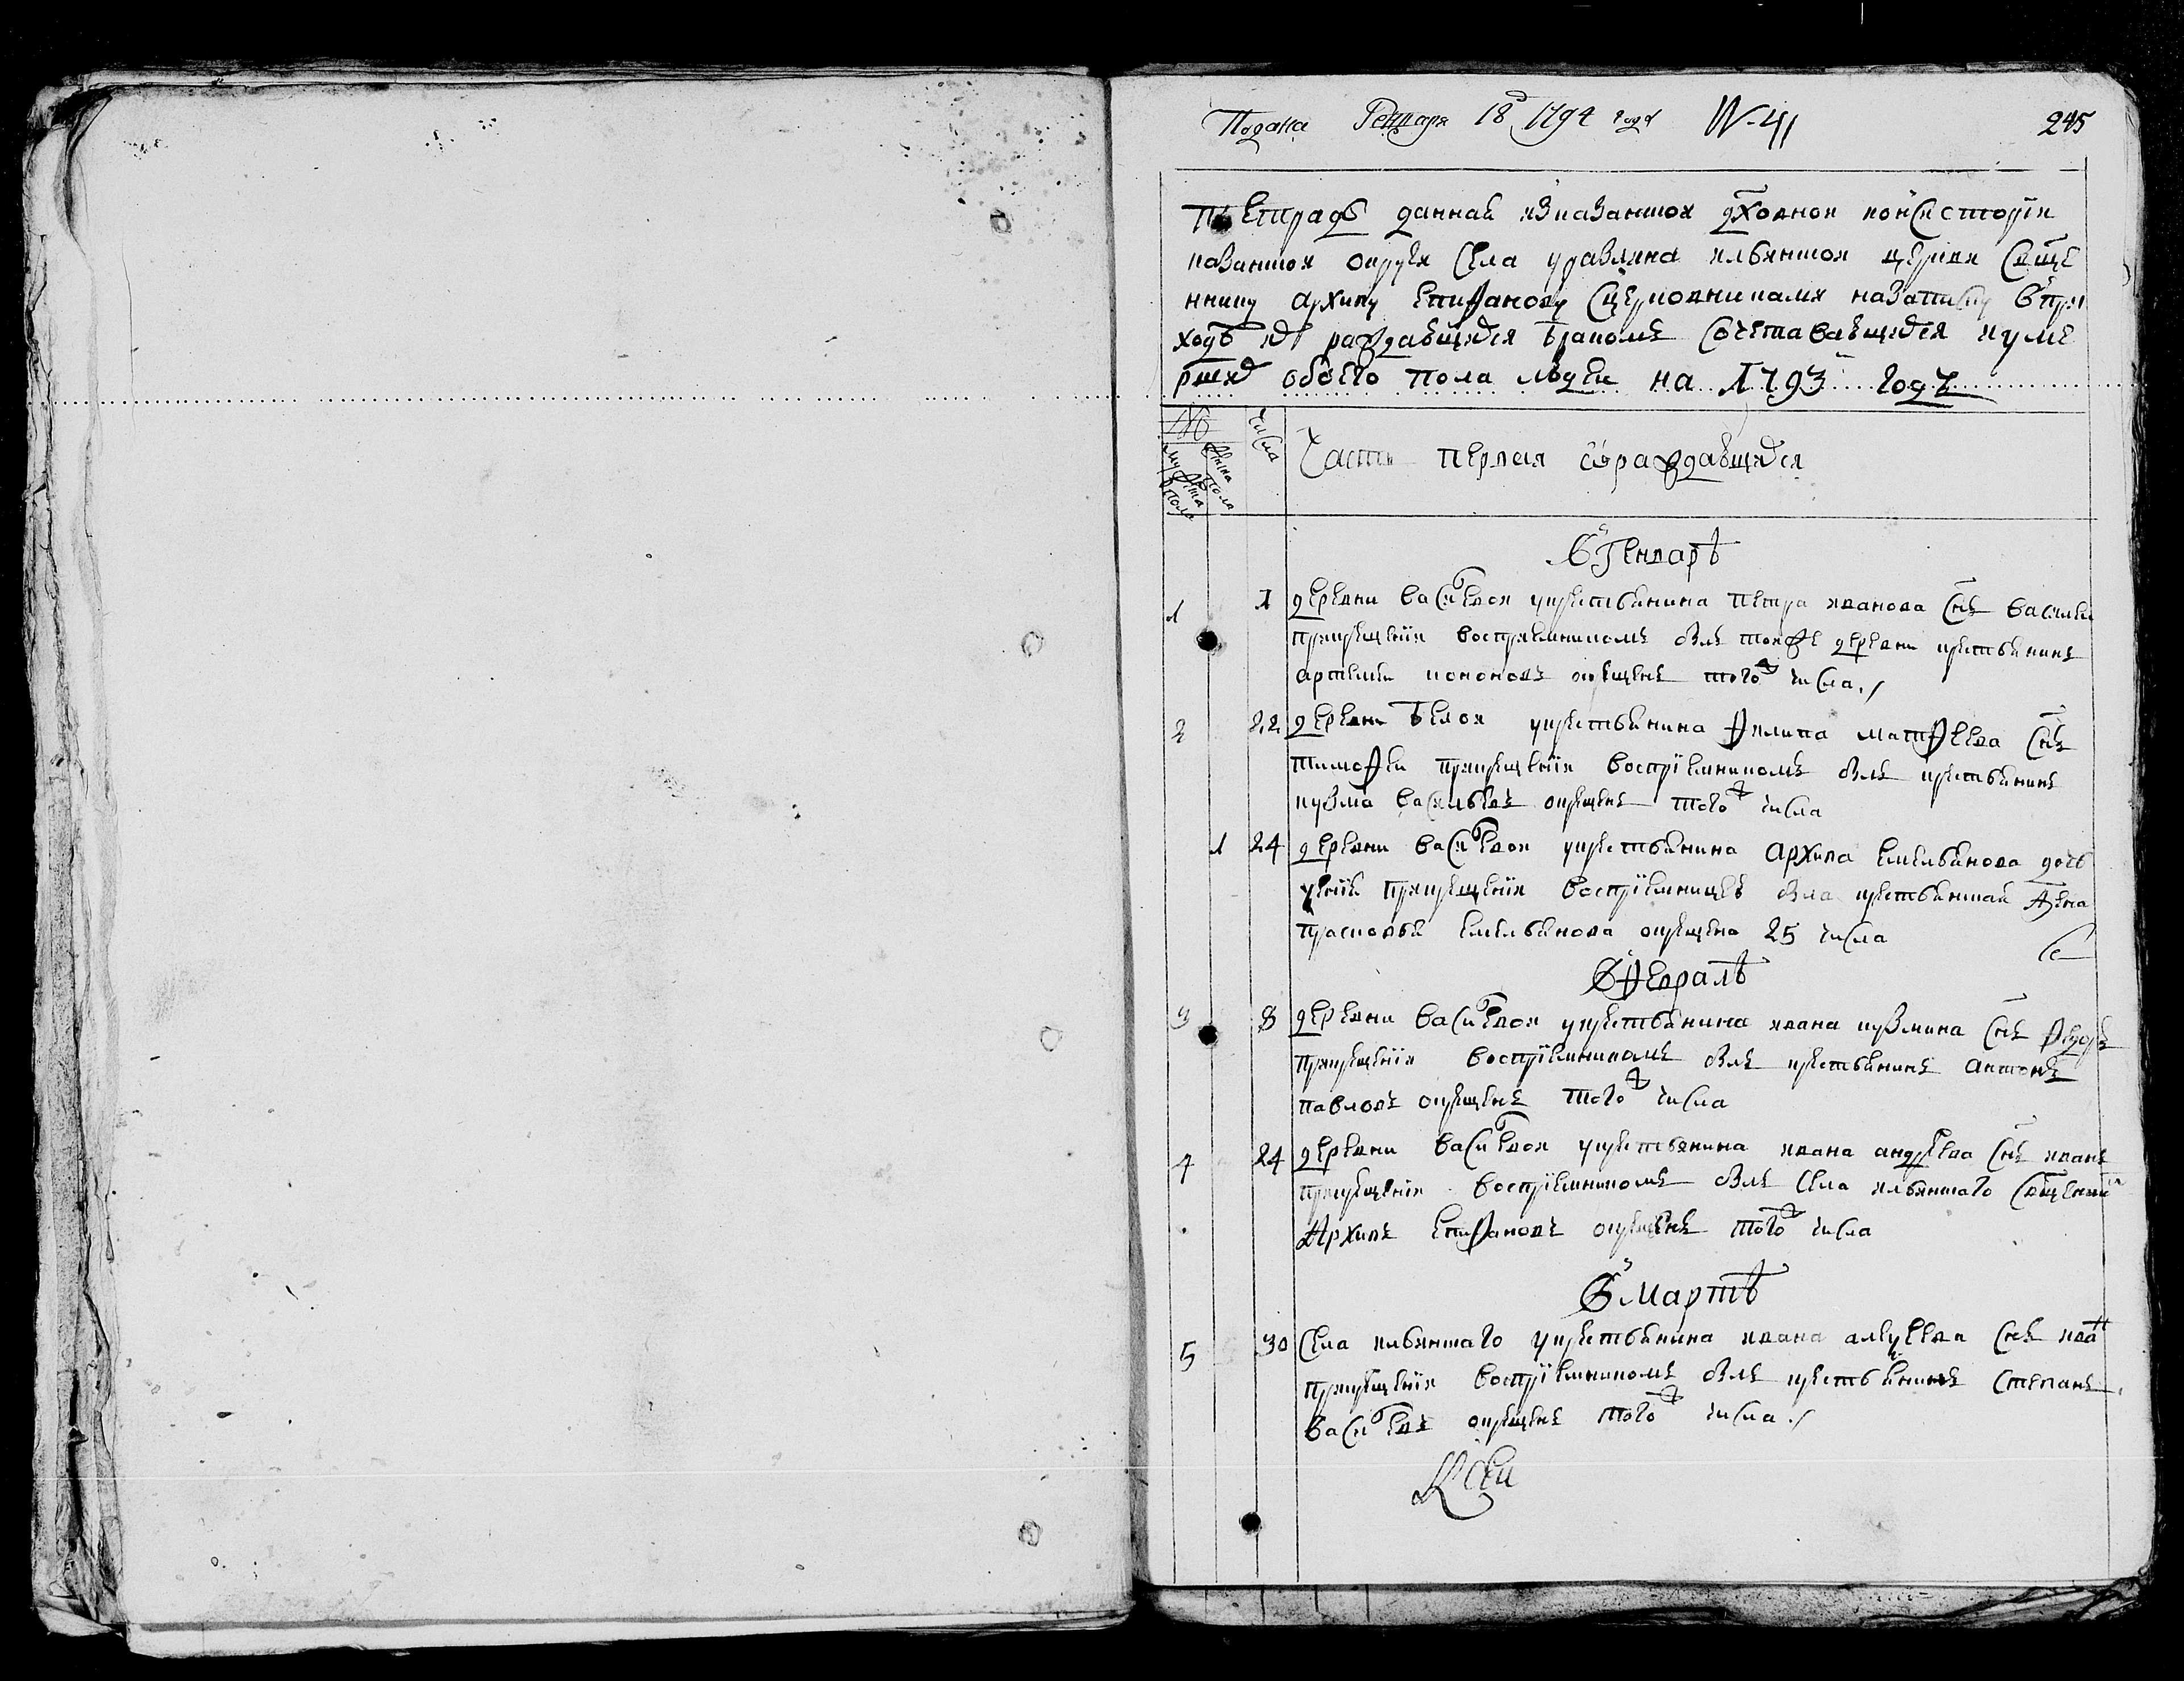 Подана Генваря 18 д 1794 года № 41 245
Тетрадь данная исказанской дховной консистории
казанской округи села уразлина ильинской церкви свще
ннику архипу епифанову сцерковниками назаписку впри
ходѣ их раждающихся бракомъ сочетавающихся иуме
ршихъ обоего пола людей на 1793 годъ
№ числа
мужеска пола женска пола
Часть первая ораждающихся
В Генварѣ
1 1 деревни васильевой укрестьянина петра иванова снъ василей
прикрещении восприемникомъ былъ тойже деревни крестьянинъ
артемей кононовъ окрещенъ того ж числа
2 22 деревни белой укрестьянина филипа матфеева снъ
тимофей прикрещении восприемникомъ былъ крестьянинъ
кузма васильевъ окрещенъ того ж числа
1 24 деревни васильевой укрестьянина архипа емельянова дочь
ксения прикрещении восприемницею была крестьянская жена
прасковья емельянова окрещена 25 числа
В Февралѣ
3 8 деревни васильевой укрестьянина ивана кузмина снъ федоръ
прикрещении восприемникомъ былъ крестьянинъ антонъ
павловъ окрещенъ того ж числа
4 24 деревни васильевой укрестьянина ивана андреева снъ иванъ
прикрещении восприемникомъ былъ села ильинскаго свщенникъ
Архипъ Епифановъ окрещенъ того ж числа
В Мартѣ
5 30 Села ильинскаго укрестьянина ивана алексеева снъ иванъ
прикрещении восприемникомъ былъ крестьянинъ степанъ
васильевъ окрещенъ того ж числа